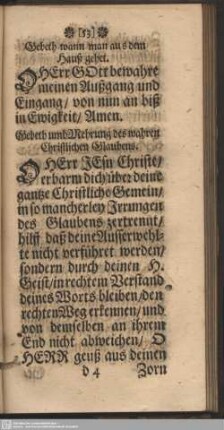 [53]
Gebeth wann man aus dem
Hauß gehet.
O HErr GOtt bewahre
meinen Außgang und
Eingang/ von nun an biß
in Ewigkeit/ Amen.
Gebeth umb Mehrung des wahren
Christlichen Glaubens.
O HErr JEsu Christe/
erbarm dich über deine
gantze Christliche Gemein/
in so mancherley Irrungen
des Glaubens zertrennt/
hilff daß deine Ausserwehl-
te nicht verführet werden/
sondern durch deinen H.
Geist/ in rechtem Verstand
deines Worts bleiben/ den
rechten Weg erkennen/ und
von demselben an ihrem
End nicht abweichen/ O
HERR geuß aus deinen
d 4 Zorn